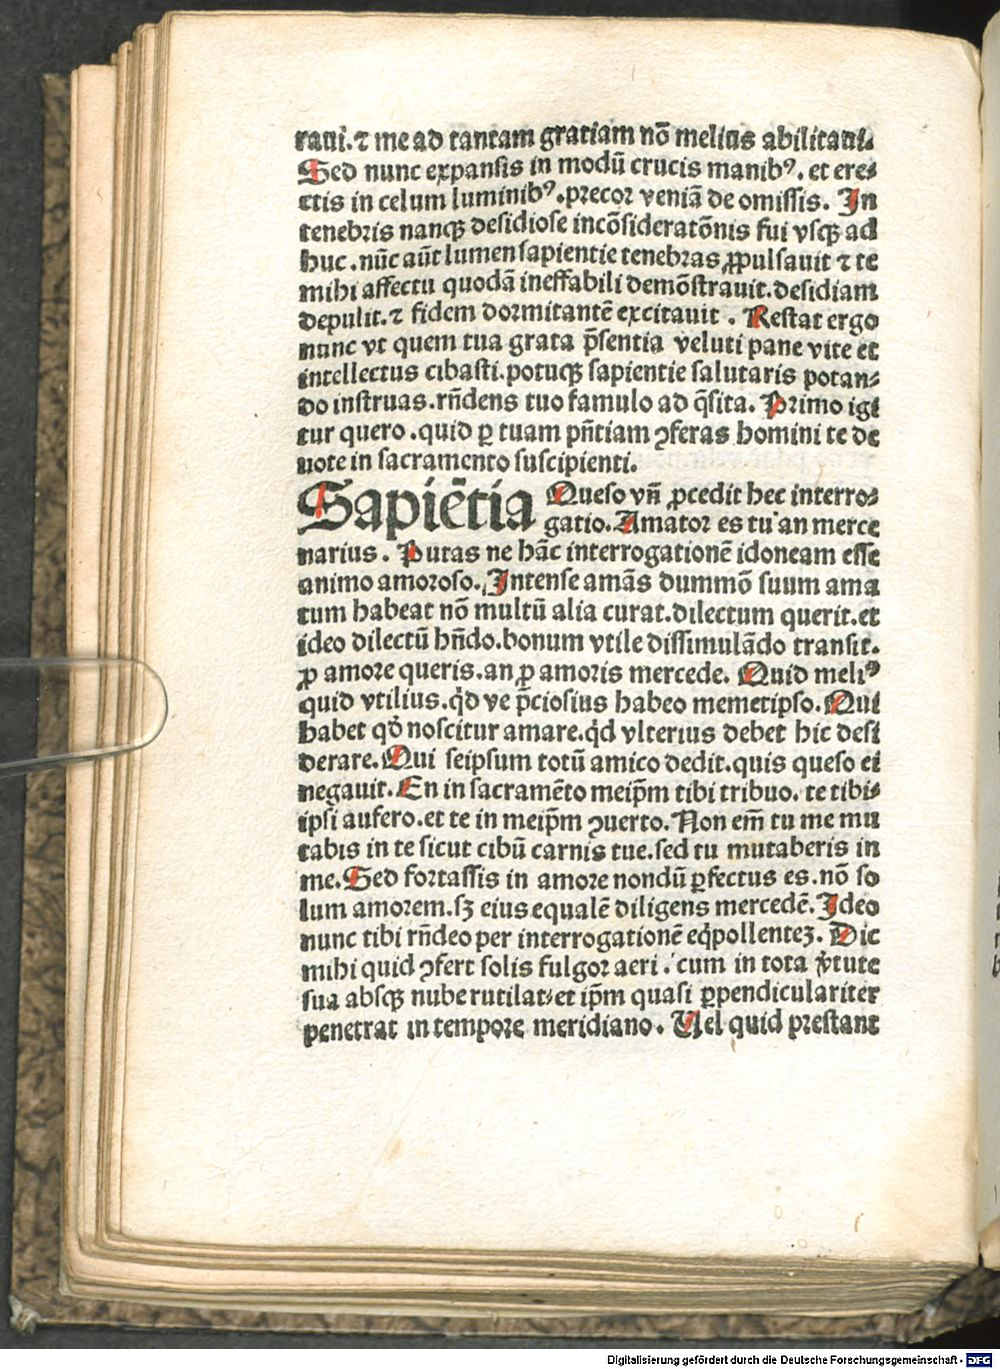 raui. ⁊ me ad tantam gratiam nō melius abilitaui.
Sed nunc expansis in modū crucis manibꝰ. et ere⸗
ctis in celum luminibꝰ. precor veniā de omissis. In
tenebris nanqꝫ desidiose incōsideratōnis fui vsqꝫ ad
huc. nūc aūt lumen sapientie tenebras ꝓpulsauit ⁊ te
mihi affectu quodā ineffabili demōstrauit. desidiam
depulit. ⁊ fidem dormitantē excitauit. Restat ergo
nunc vt quem tua grata p̄sentia veluti pane vite et
intellectus cibasti. potuqꝫ sapientie salutaris potan⸗
do instruas. rn̄dens tuo famulo ad q̄sita. Primo igi
tur quero. quid ꝑ tuam pn̄tiam ꝯferas homini te de
uote in sacramento suscipienti.
Sapiētia Queso vn̄ ꝓcedit hec interro⸗
gatio. Amator es tu an merce
narius. Putas ne hāc interrogationē idoneam esse
animo amoroso. Intense amās dummō suum ama
tum habeat nō multū alia curat. dilectum querit. et
ideo dilectū hn̄do. bonum vtile dissimulādo transit.
ꝓ amore queris. an ꝓ amoris mercede. Quid meliꝰ
quid vtilius. qd̄ ve p̄ciosius habeo memetipso. Qui
habet qd̄ noscitur amare. qd̄ vlterius debet hic desi
derare. Qui seipsum totū amico dedit. quis queso ei
negauit. En in sacramēto meip̄m tibi tribuo. te tibi⸗
ipsi aufero. et te in meip̄m ꝯuerto. Non em̄ tu me mu
tabis in te sicut cibū carnis tue. sed tu mutaberis in
me. Sed fortassis in amore nondū ꝑfectus es. nō so
lum amorem. sꝫ eius equalē diligens mercedē. Ideo
nunc tibi rn̄deo per interrogationē eqͥpollenteꝫ. Dic
mihi quid ꝯfert solis fulgor aeri. cum in tota v̓tute
sua absqꝫ nube rutilat⸗ et ip̄m quasi ꝑpendiculariter
penetrat in tempore meridiano. Uel quid prestant
Digitalisierung gefördert durch die Deutsche Forschungsgemeinschaft - DFG